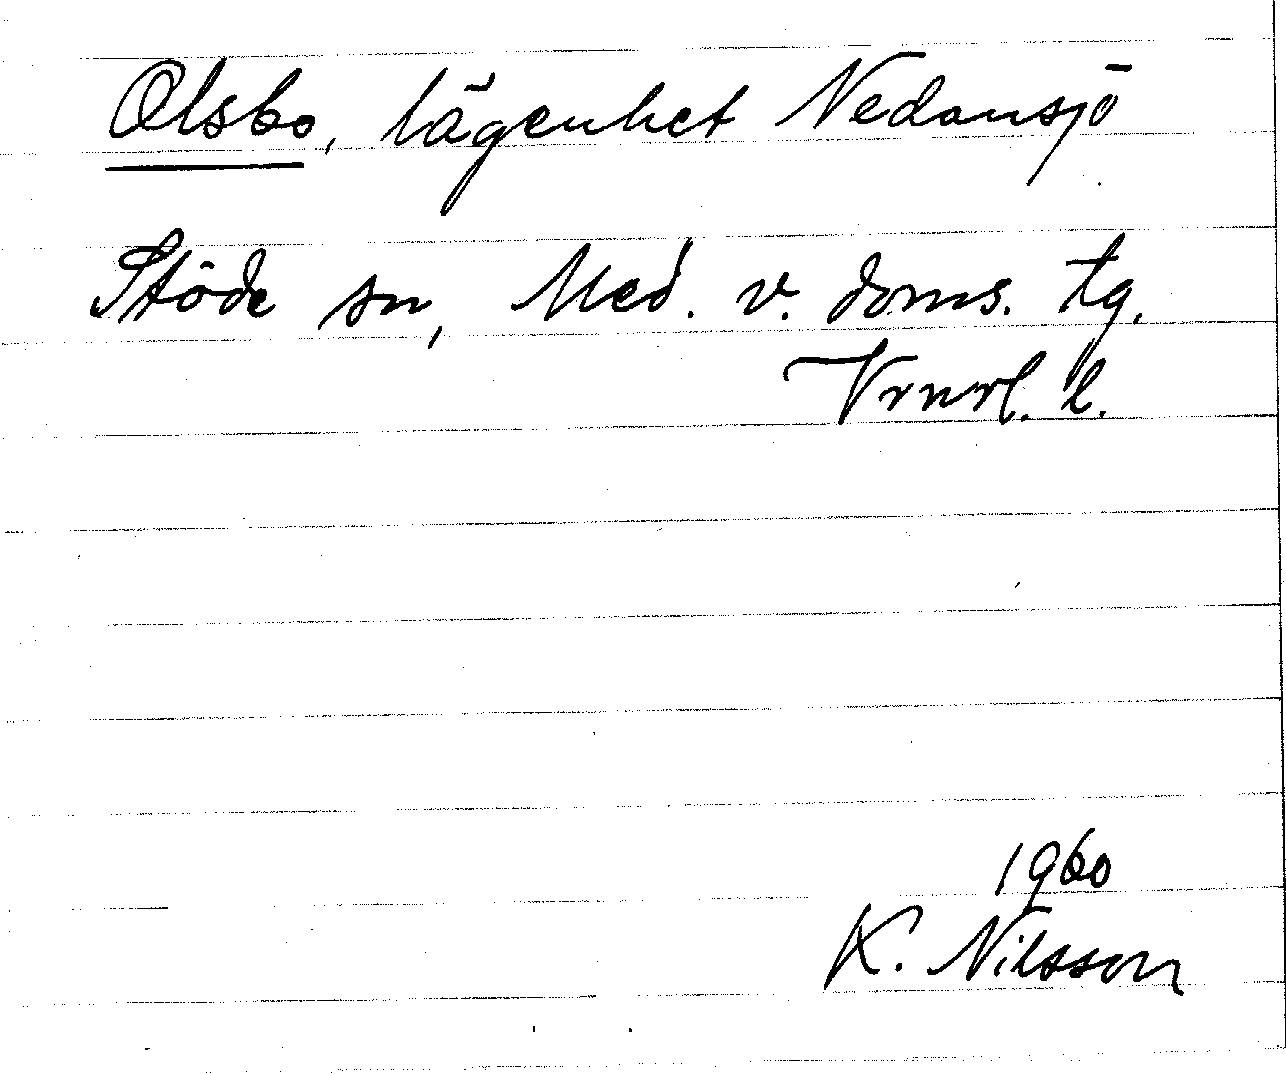 Olsbo, lägenhet Nedansjö
Stöde sn, Med. v. doms. tg.
Vrnrl. l.
1960
K. Nilsson